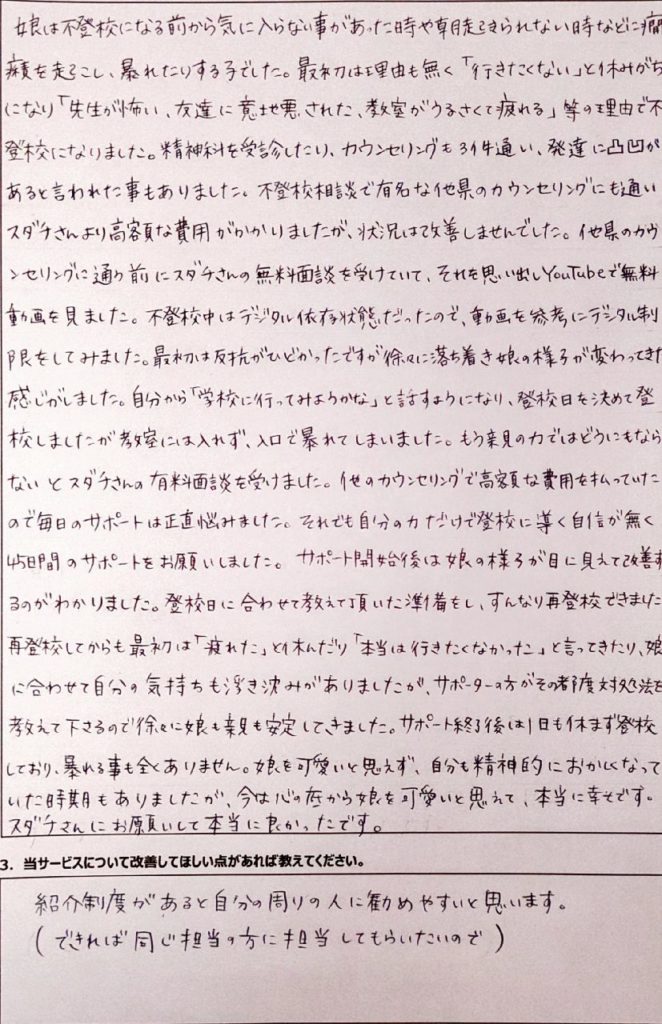 娘は不登校になる前から気に入らない事があった時や朝起きられない時などに癇
癪を起こし、暴れたりする子でした。最初は理由も無く「行きたくない」と休みがち
になり「先生が怖い、友達に意地悪された、教室がうるさくて疲れる」等の理由で不
登校になりました。精神科を受診したり、カウンセリングも3件通い、発達に凸凹が
あると言われた事もありました。不登校相談で有名な他県のカウンセリングにも通い
スダチさんより高額な費用がかかりましたが、状況は改善しませんでした。他県のカウ
ンセリングに通う前にスダチさんの無料面談を受けていて、それを思い出しYouTubeで無料
動画を見ました。不登校中はデジタル依存状態だったので、動画を参考にデジタル制
限をしてみました。最初は反抗がひどかったですが徐々に落ち着き娘の様子が変わってきた
感じがしました。自分から「学校に行ってみようかな」と話すようになり、登校日を決めて登
校しましたが教室には入れず、入口で暴れてしまいました。もう親の力ではどうにもなら
ないとスダチさんの有料面談を受けました。他のカウンセリングで高額な費用を払っていた
ので毎日のサポートは正直悩みました。それでも自分の力だけで登校に導く自信が無く
45日間のサポートをお願いしました。サポート開始後は娘の様子が目に見えて改善す
るのがわかりました。登校日に合わせて教えて頂いた準備をし、すんなり再登校できました
再登校してからも最初は「疲れた」と休んだり「本当は行きたくなかった」と言ってきたり、娘
に合わせて自分の気持ちも浮き沈みがありましたが、サポーターの方がその都度対処法を
教えて下さるので徐々に娘も親も安定してきました。サポート終了後は1日も休まず登校
しており、暴れる事も全くありません。娘を可愛いと思えず、自分も精神的におかしくなって
いた時期もありましたが、今は心の底から娘を可愛いと思えて、本当に幸せです。
スダチさんにお願いして本当に良かったです。
3. 当サービスについて改善してほしい点があれば教えてください。
紹介制度があると自分の周りの人に勧めやすいと思います。
(できれば同じ担当の方に担当してもらいたいので)